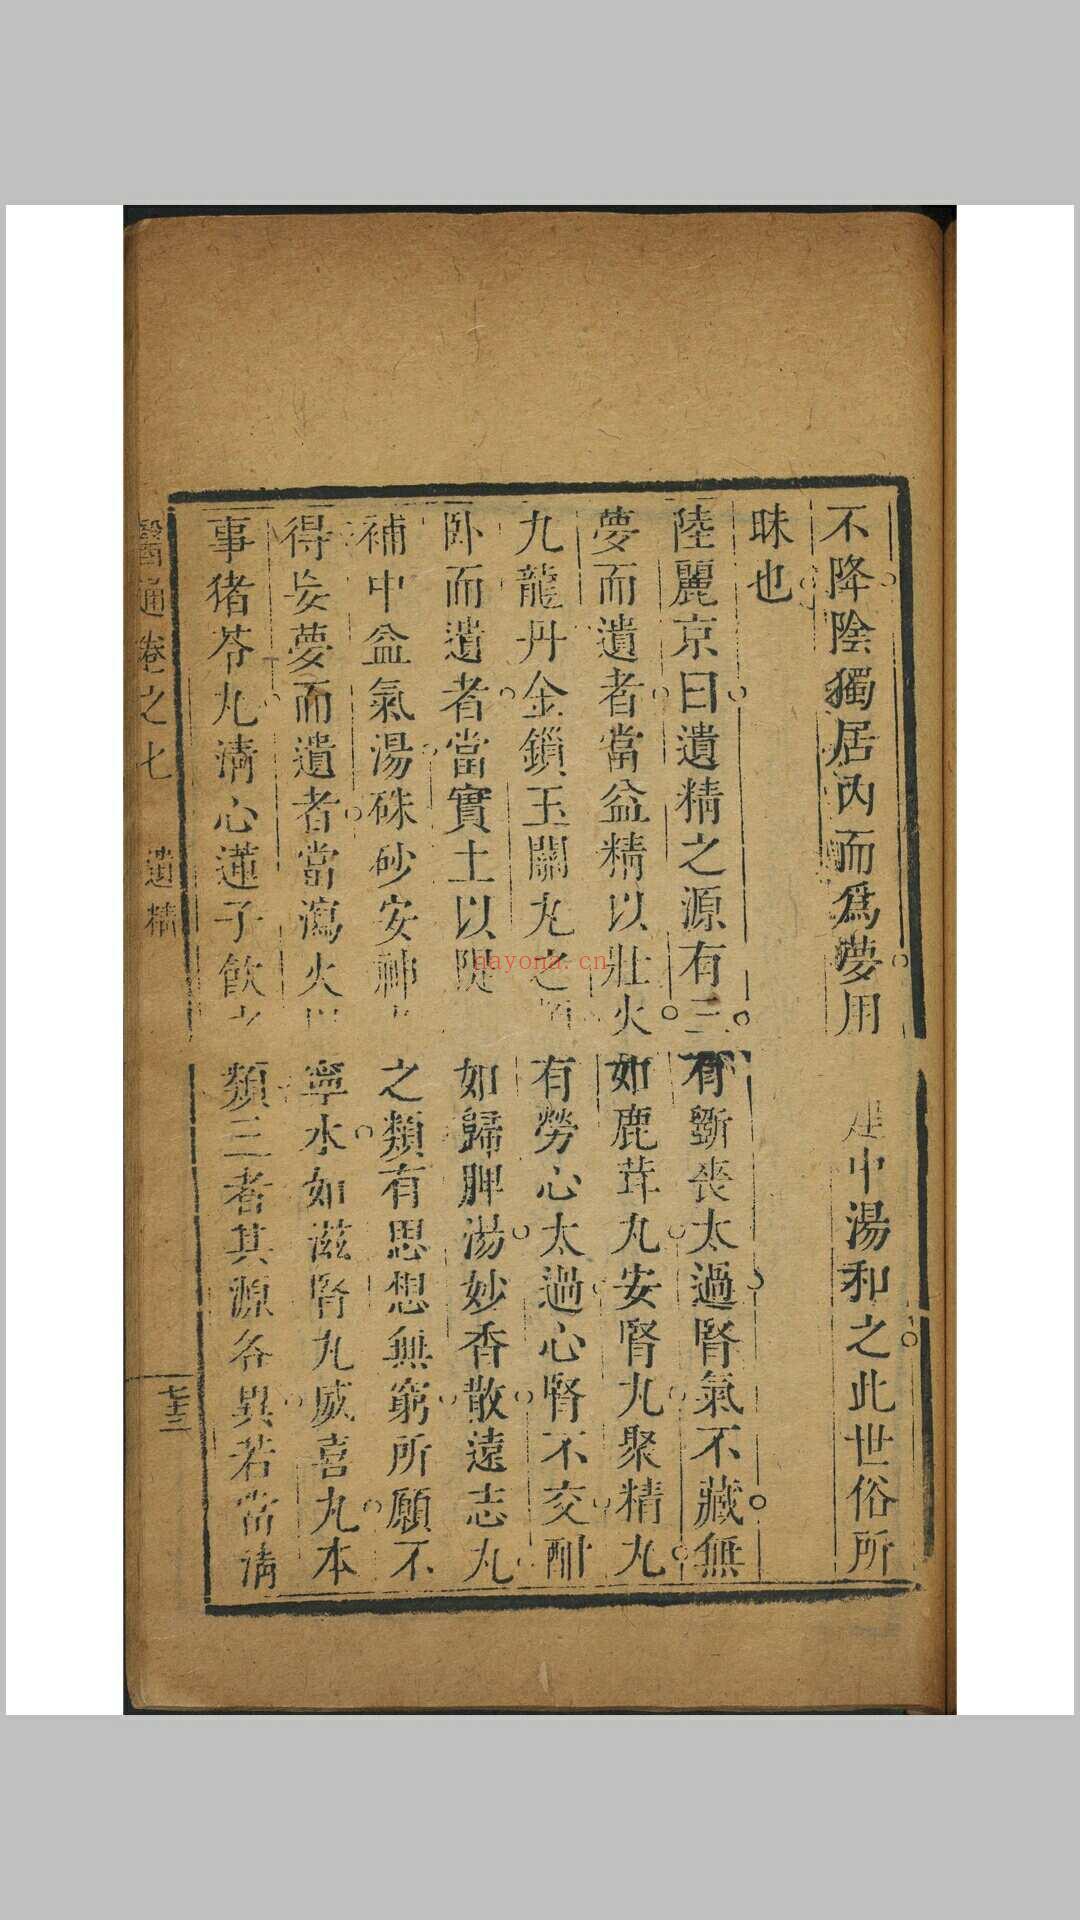 不降陰獨居內而爲夢用建中湯和之此世俗所
昧也
陸麗京曰遺精之源有三有斲喪太過腎氣不藏無
夢而遺者當益精以壯火如鹿茸丸安腎丸聚精丸
九龍丹金鎖玉關丸之類有勞心太過心腎不交酣
卧而遺者當實土以隄如歸脾湯妙香散遠志丸
補中益氣湯硃砂安神之類有思想無窮所願不
得妄夢而遺者當瀉火以寧水如滋腎丸威喜丸本
事猪苓丸清心蓮子飲之類三者其源各異若當清
醫通卷之七 遺精 七十三
aayona.cn